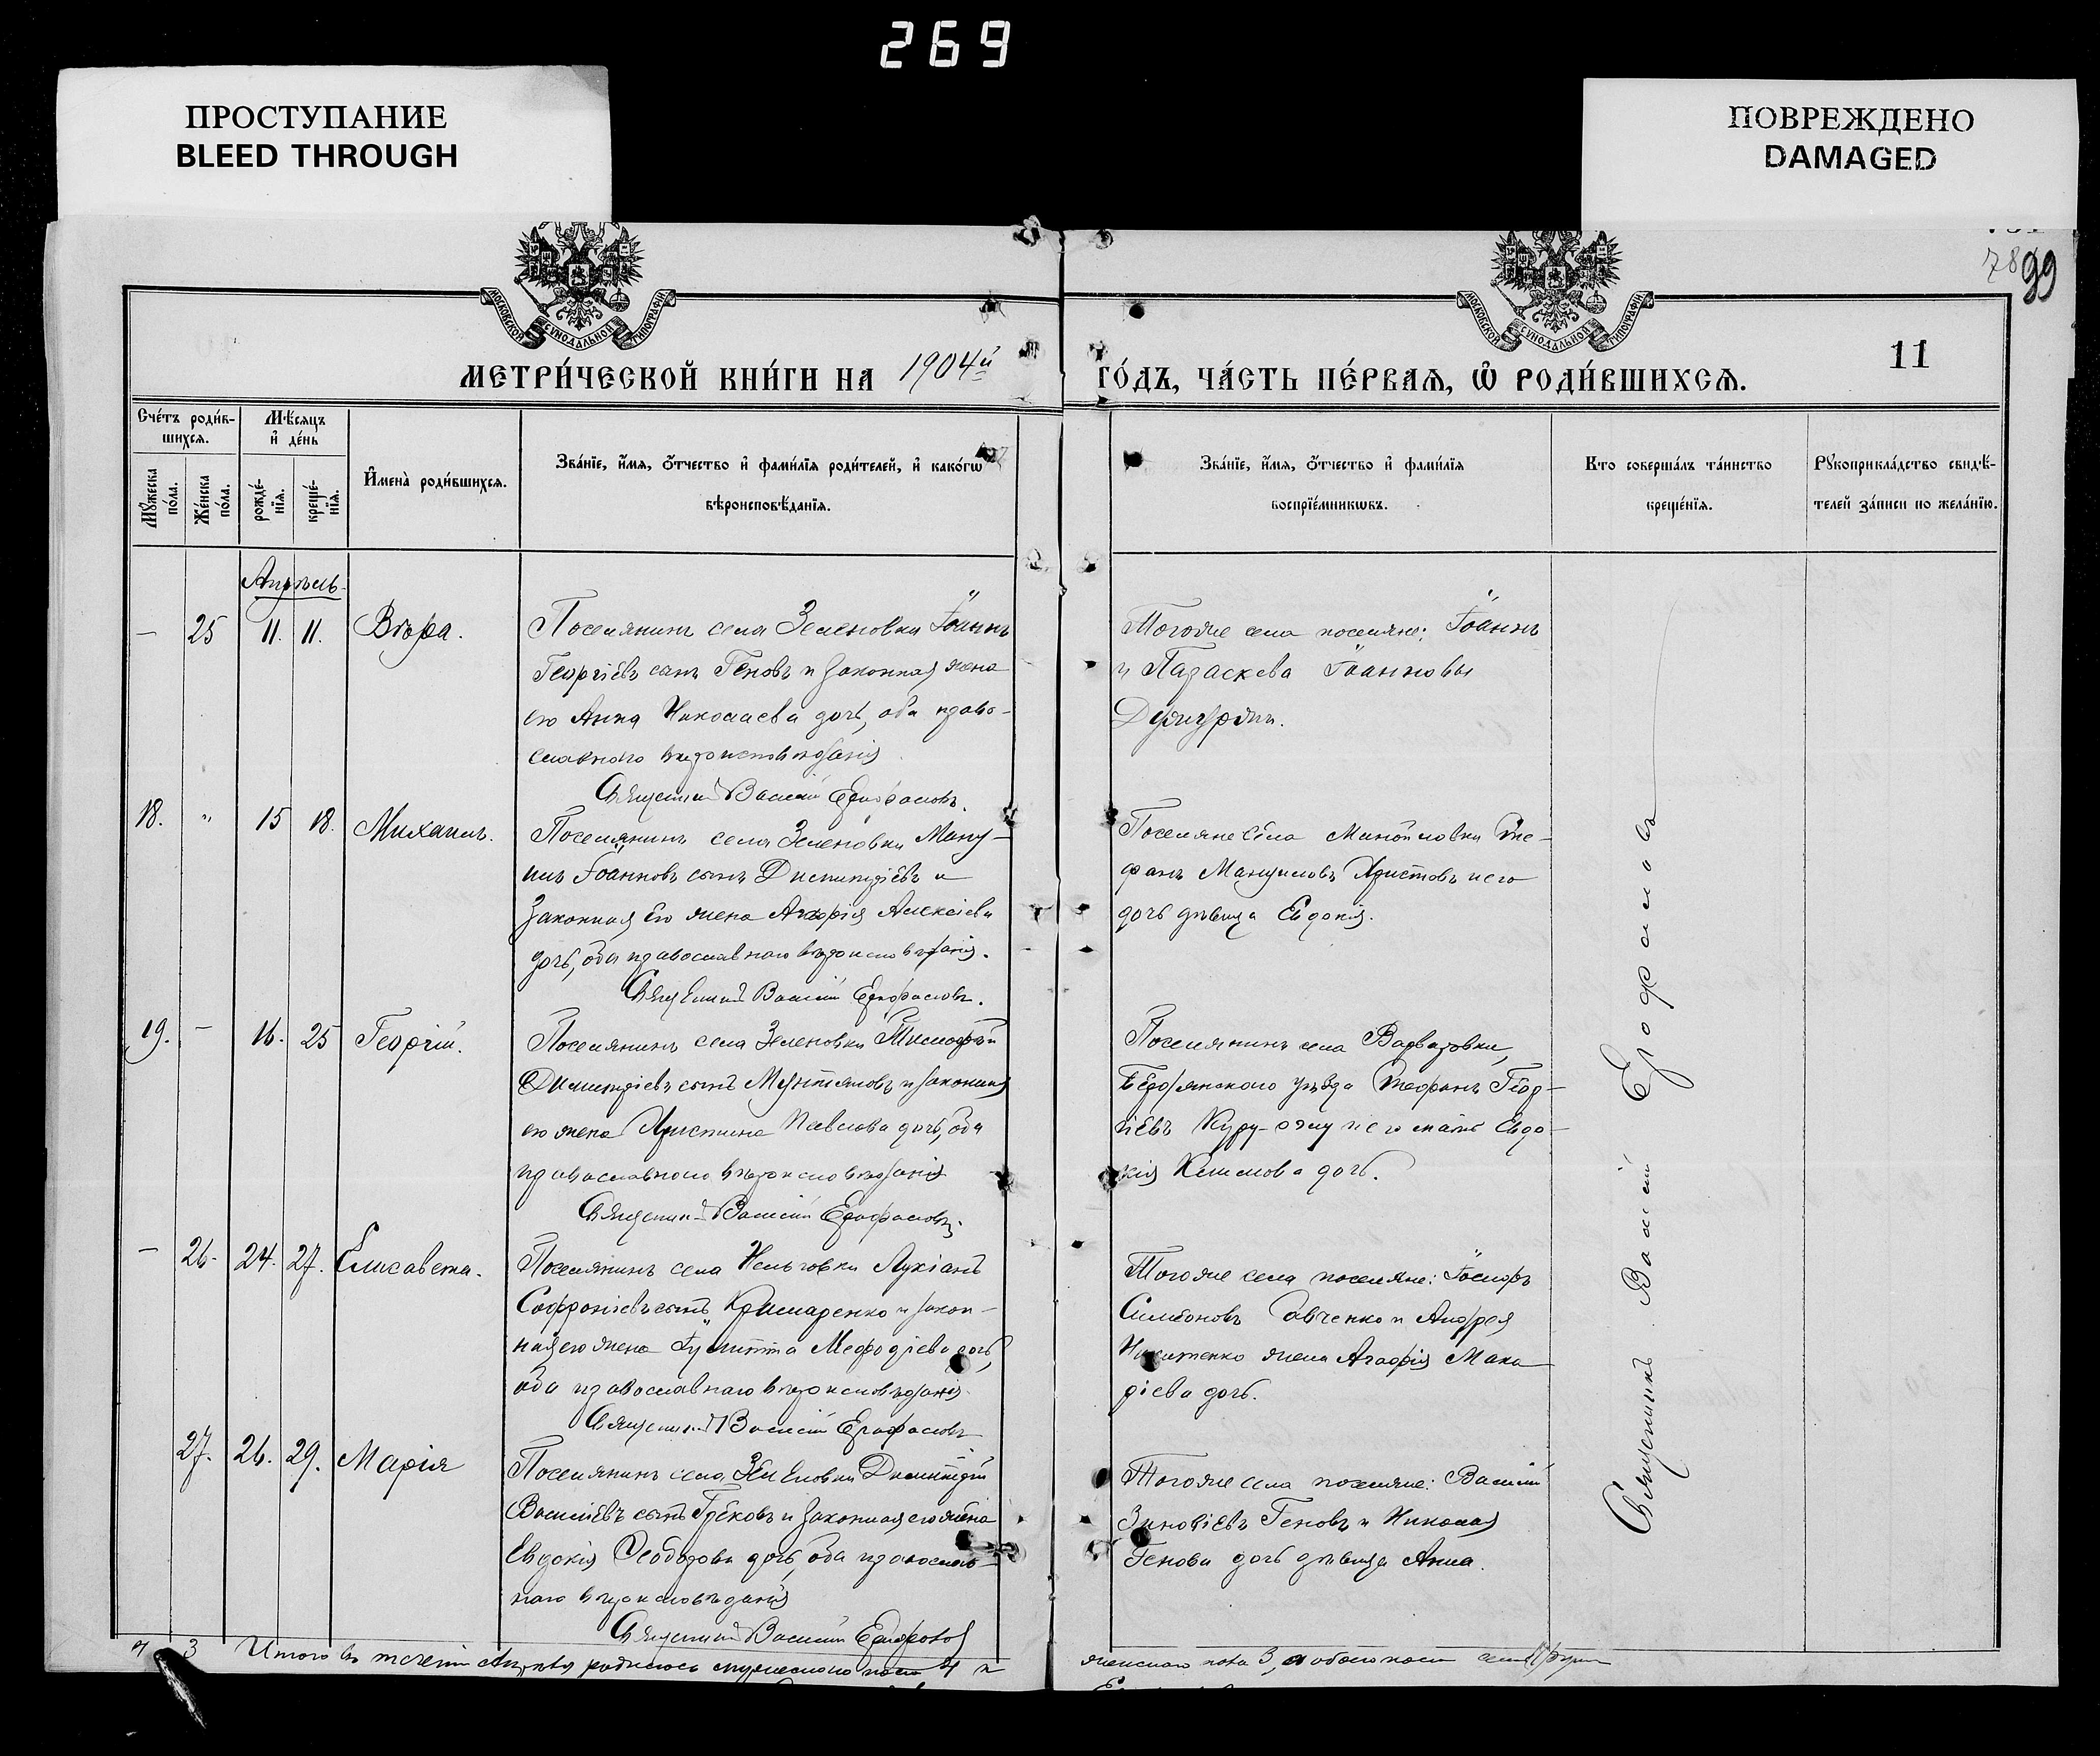 269
ПРОСТУПАНИЕ
BLEED THROUGH
ПОВРЕЖДЕНО
DAMAGED
78 99
МОСКОВСКОЙ СѴНОДАЛЬНОЙ ТИПОГРАФІИ
МОСКОВСКОЙ СѴНОДАЛЬНОЙ ТИПОГРАФІИ
11
МЕТРИ́ЧЕСКОЙ КНИ́ГИ НА 1904й ГО́ДЪ, ЧА́СТЬ ПЕ́РВАѦ, Ѽ РОДИ́ВШИХСѦ.
Сче́тъ роди́вшихсѧ.
Мꙋ́жеска по́ла.
Же́нска по́ла.
Мѣ́сѧцъ и҆ де́нь
рожде́нїѧ.
креще́нїѧ.
И҆мена̀ роди́вшихсѧ.
Зва́нїе, и҆́мѧ, ѻ҆́тчество и҆ фами́лїѧ роди́телей, и҆ како́гѡ
вѣроисповѣ́данїѧ.
Зва́нїе, и҆́мѧ, ѻ҆́тчество и҆ фами́лїѧ
воспрїе́мникѡвъ.
Кто̀ соверша́лъ та́инство
креще́нїѧ.
Рꙋкоприкла́дство свидѣ́-
телей за́писи по жела́нїю.
Апрѣль.
— 25 11. 11. Вѣра.
Поселянинъ села Зеленовки Іоаннъ
Георгіевъ сынъ Геновъ и законная жена
его Анна Николаева дочь, оба право-
славнаго вѣроисповѣданія
Священникъ Василій Ерофаловъ.
Тогоже села поселяне: Іоаннъ
и Параскева Іоанновы
18. " 15 18. Михаилъ.
Поселянинъ села Зеленовки Ману-
илъ Іоанновъ сынъ Димитріевъ и
законная его жена Агафія Алексіева
дочь, оба православнаго вѣроисповѣданія.
Священникъ Василій Ерофаловъ.
Поселяне села Мануиловки Сте-
фанъ Мануиловъ Христовъ и его
дочь дѣвица Евдокія.
19. — 16. 25 Георгій.
Поселянинъ села Зеленовки Тимофей
Димитріевъ сынъ Мунтяновъ и законная
его жена Христина Павлова дочь, оба
православнаго вѣроисповѣданія
Священникъ Василій Ерофаловъ.
Поселянинъ села Варваровки,
Бердянскаго уѣзда Стефанъ Геор-
гіевъ Куру-оглу и его мать Евдо-
кія дочь.
— 26. 24. 27. Елисавета.
Поселянинъ села Нельговки Лукіанъ
Софроніевъ сынъ Кришаренко и закон-
ная его жена Іулитта Мефодіева дочь,
оба православнаго вѣроисповѣданія.
Священникъ Василій Ерофаловъ
Тогоже села поселяне: Іосифъ
Симеоновъ и Андрея
Никитенко жена Агафія Мака-
ріева дочь.
27. 26. 29. Марія
Поселянинъ села Зеленовки Димитрій
Василіевъ сынъ Грековъ и законная его жена
Евдокія Ѳеодорова дочь, оба православ-
наго вѣроисповѣданія
Священникъ Василій Ерофаловъ
Тогоже села поселяне: Василій
Зиновіевъ Геновъ и Николая
Генова дочь дѣвица Анна.
Священникъ Василій Ерофаловъ
4 3 Итого въ теченіи Апрѣля родилось мужескаго пола 4 и
женскаго пола 3, а обоего пола семь